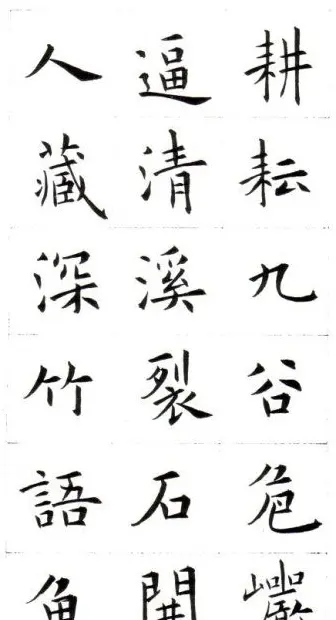 耕耘九谷危
逼清溪裂石開
人藏深竹語